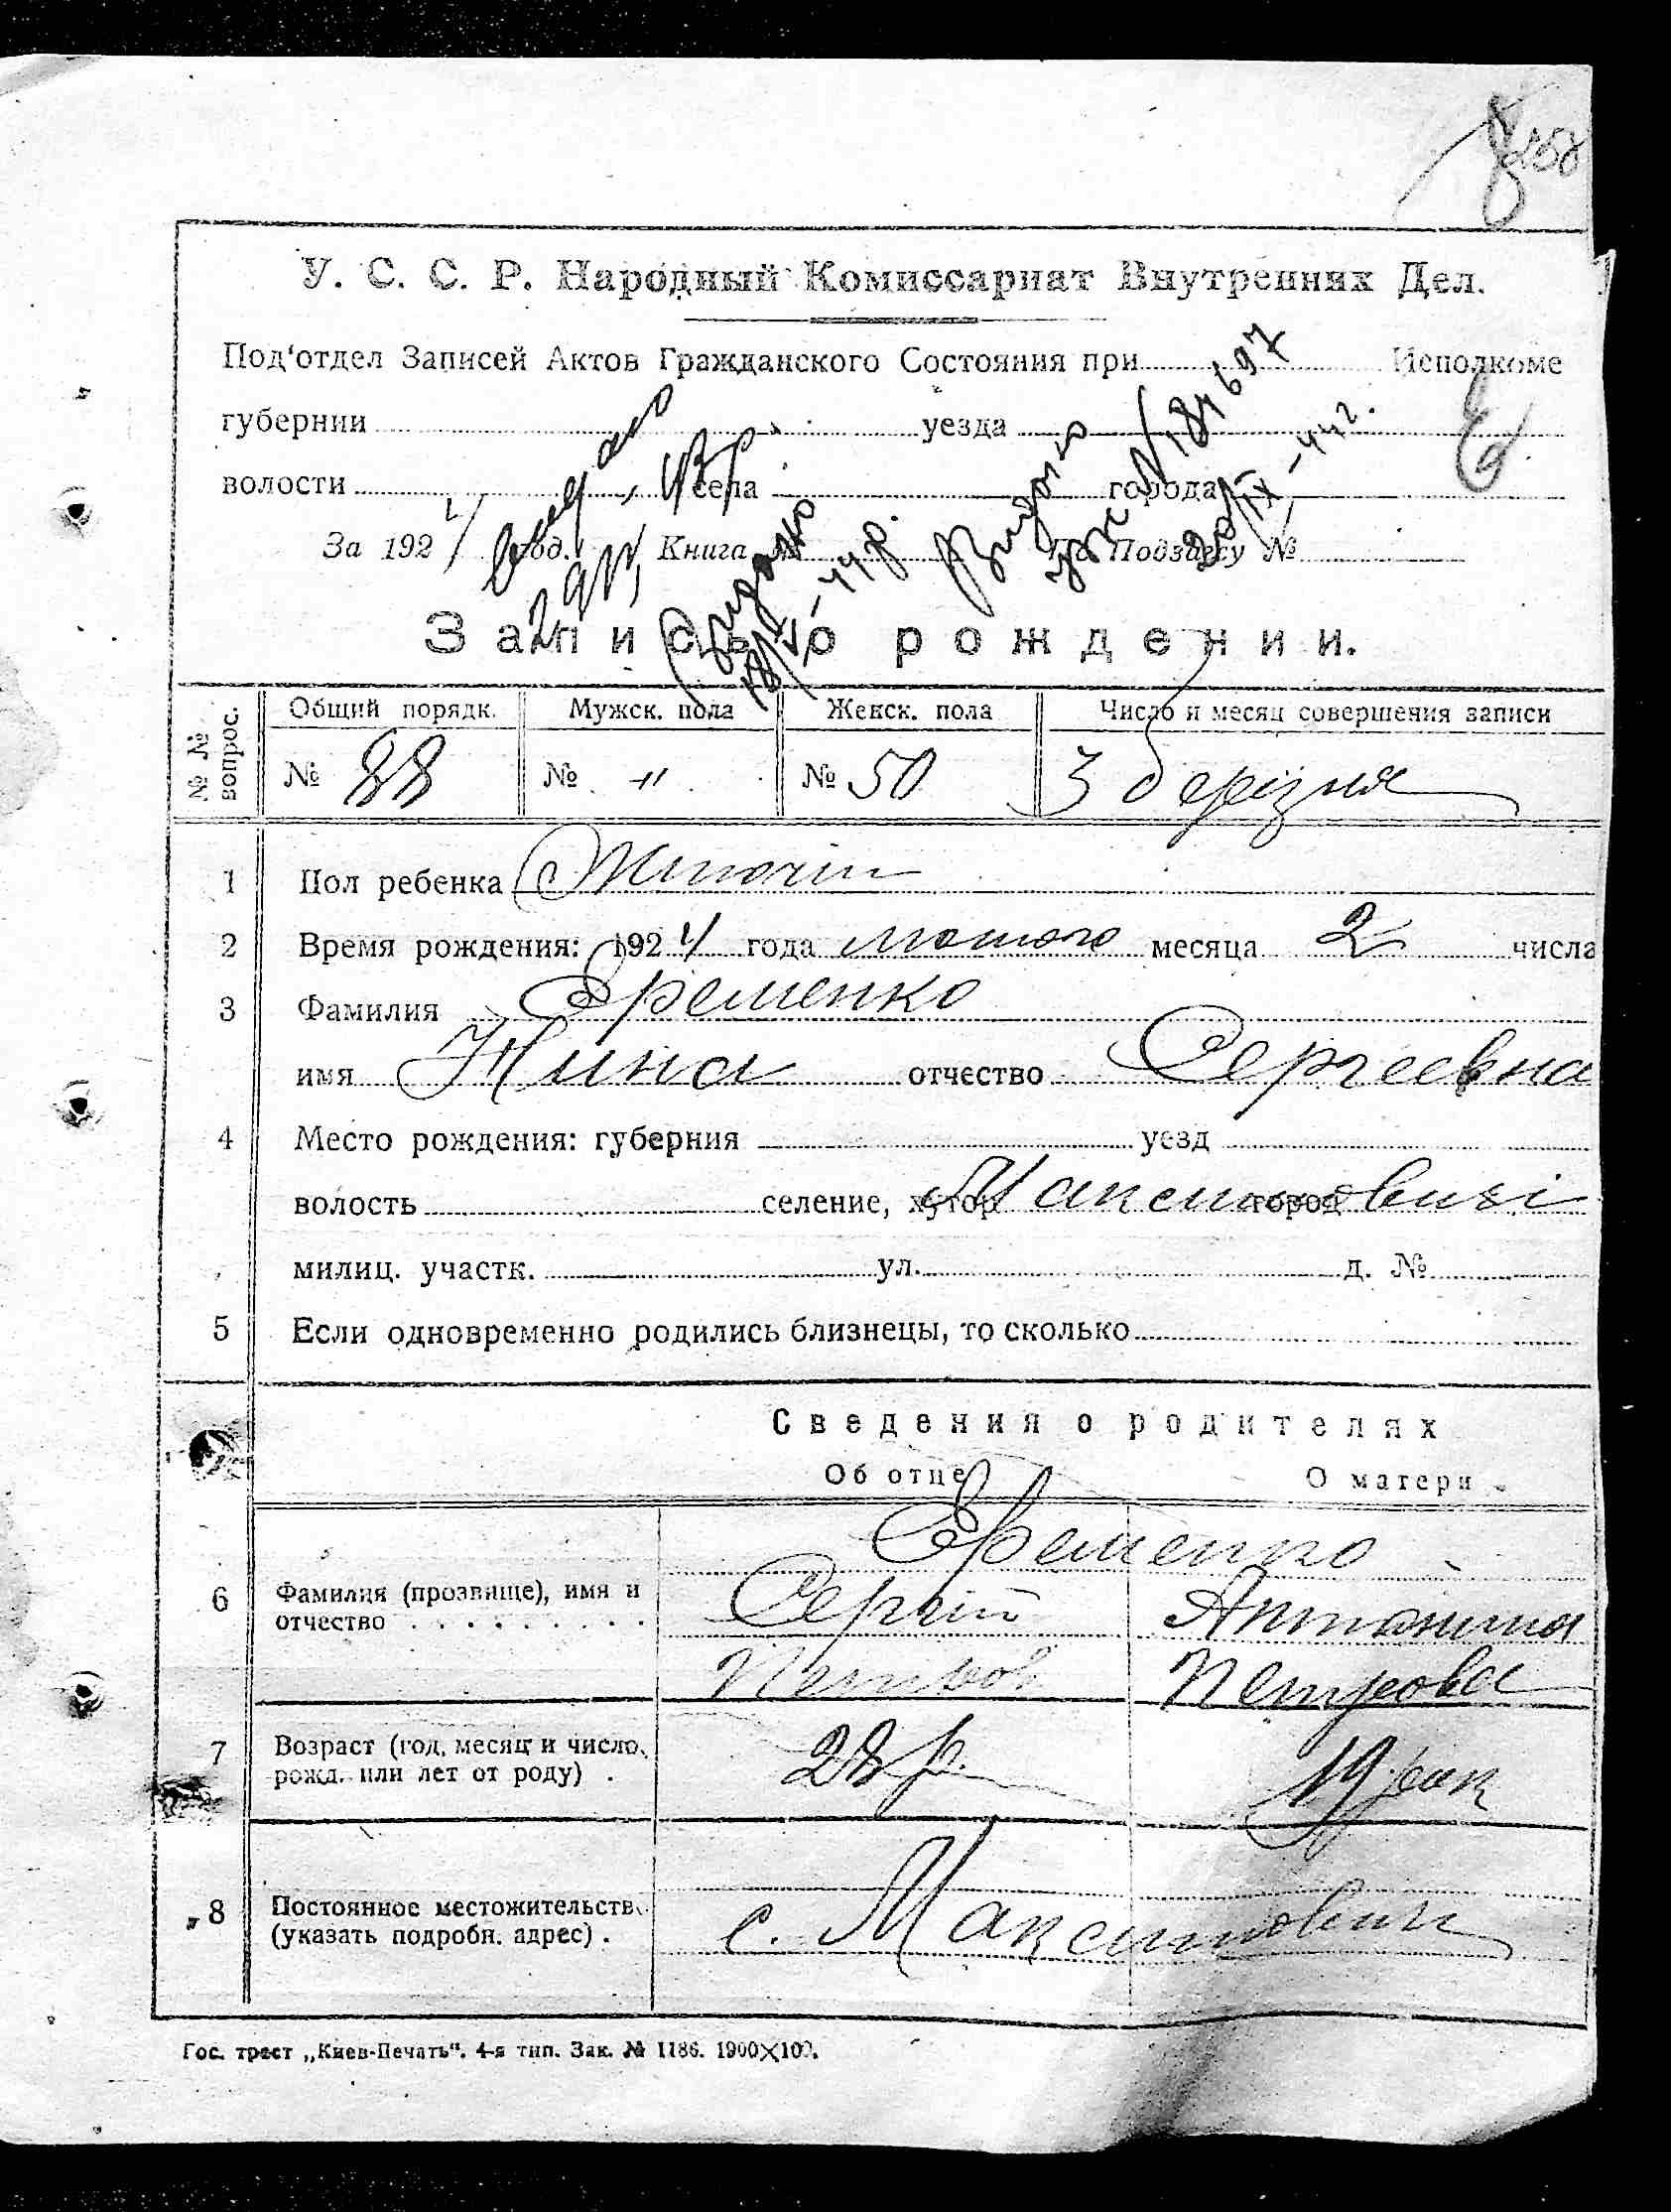 У. С. С. Р. Народный Комиссариат Внутренних Дел.
Под'отдел Записей Актов Гражданского Состояния при Исполкоме
губернии уезда
волости села города
За 1924 год. Книга № По Подзагсу №
Видано
18/V-44р.
Видано
184697
20/IX-44г.
Запись о рождении.
№ № вопрос. Общий порядк. Мужск. пола Женск. пола Число и месяц совершения записи
№ 88 № -"- № 50 3 березня
1 Пол ребенка Жіночій
2 Время рождения: 1924 года лютого месяца 2 числа
3 Фамилия Еременко
имя Нина отчество Сергеевна
4 Место рождения: губерния уезд
волость селение, хутор город Максимовичі
милиц. участк. ул. д. №
5 Если одновременно родились близнецы, то сколько
Сведения о родителях
Об отце О матери
Еременко
6 Фамилия (прозвище), имя и отчество Сергій Антонина
Петров Петрова
7 Возраст (год, месяц и число рожд. или лет от роду) 28 р. 19 рок
8 Постоянное местожительств. (указать подробн. адрес) с. Максимовичі
Гос. трест „Киев-Печать“. 4-я тип. Зак. № 1186. 1900×100.